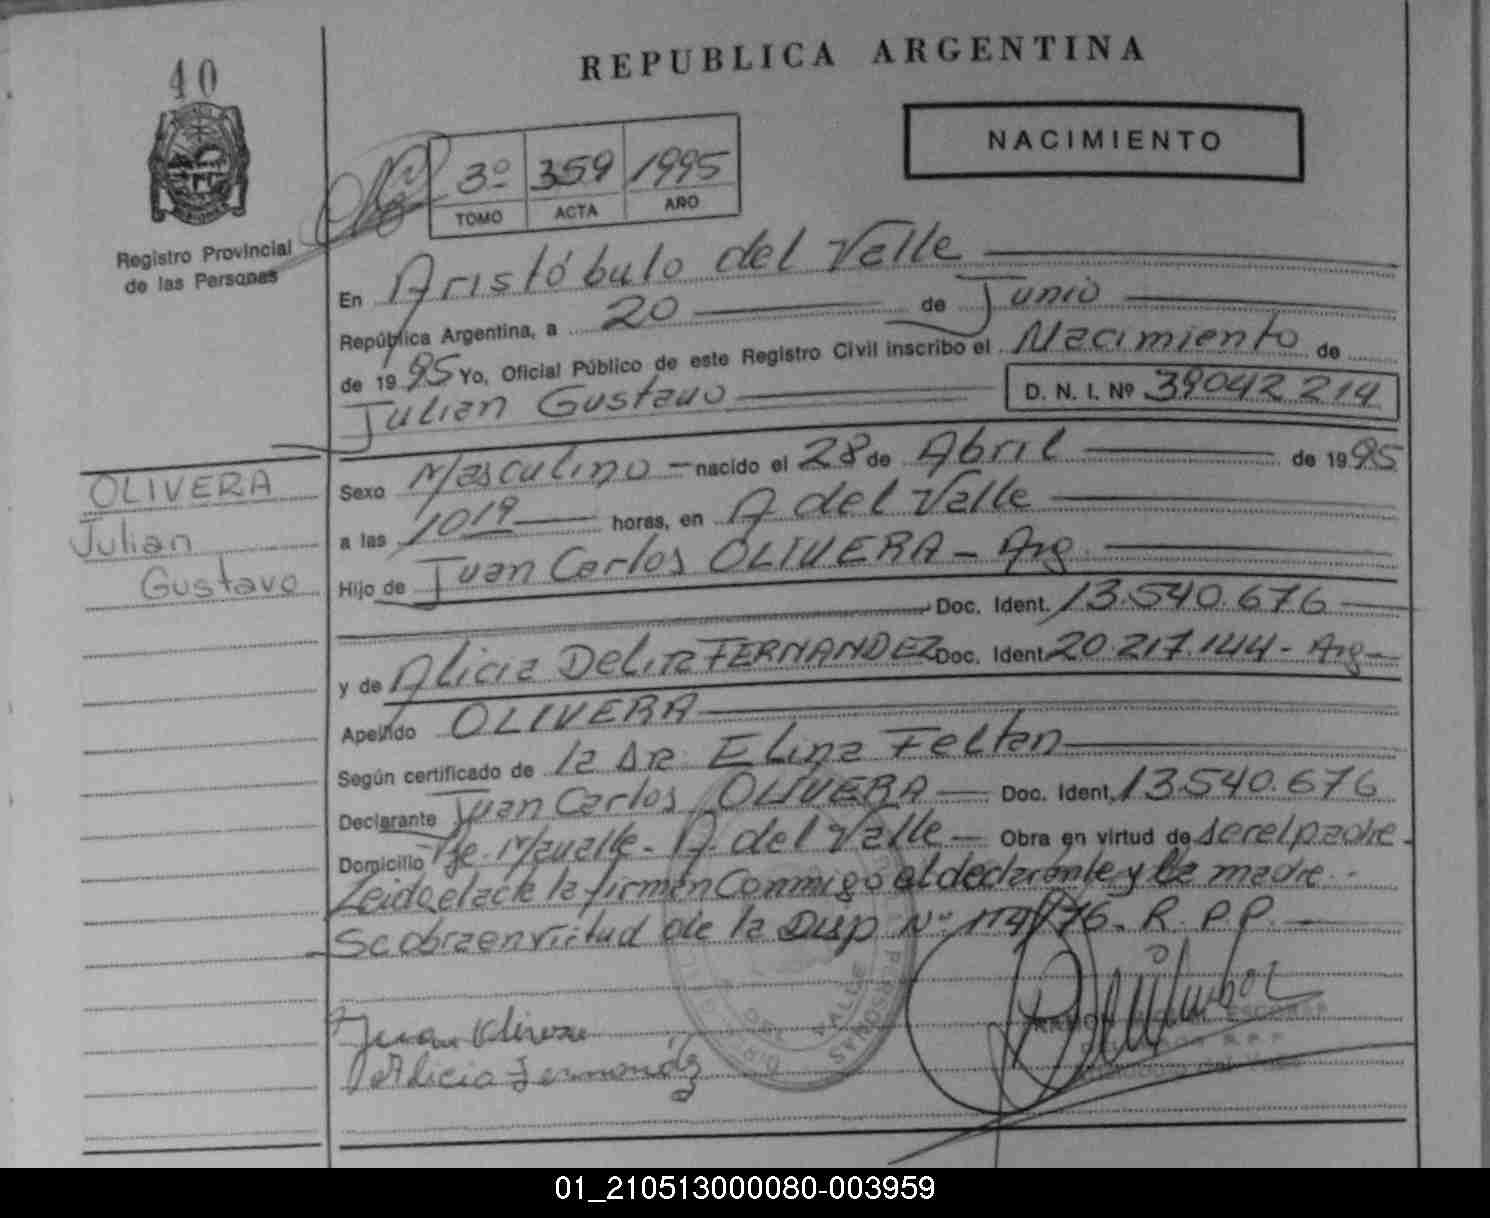 40
Registro Provincial
de las Personas
REPUBLICA ARGENTINA
NACIMIENTO
3º 359 1995
TOMO ACTA AÑO
En Aristóbulo del Valle
República Argentina, a 20 de Junio
de 1995 Yo, Oficial Público de este Registro Civil inscribo el Nacimiento de
Julian Gustavo D. N. I. Nº 39042214
OLIVERA
Julian
Gustavo
Sexo Masculino nacido el 28 de Abril de 1995
a las 1019 horas, en A del Valle
Hijo de Juan Carlos OLIVERA - Arg.
Doc. Ident. 13.540.676
y de Alicia Delia FERNANDEZ Doc. Ident. 20.217.144 - Arg
Apellido OLIVERA
Según certificado de la Dra Elina Feltan
Declarante Juan Carlos OLIVERA Doc. Ident. 13.540.676
Domicilio A. del Valle Obra en virtud de ser el padre
Leida el acta la firman Conmigo el declarante y la madre
Se obra en virtud de la Disp Nº R. P. P.
Juan Olivera
Alicia Fernandez
DEL VALLE
PERSONAS
01_210513000080-003959